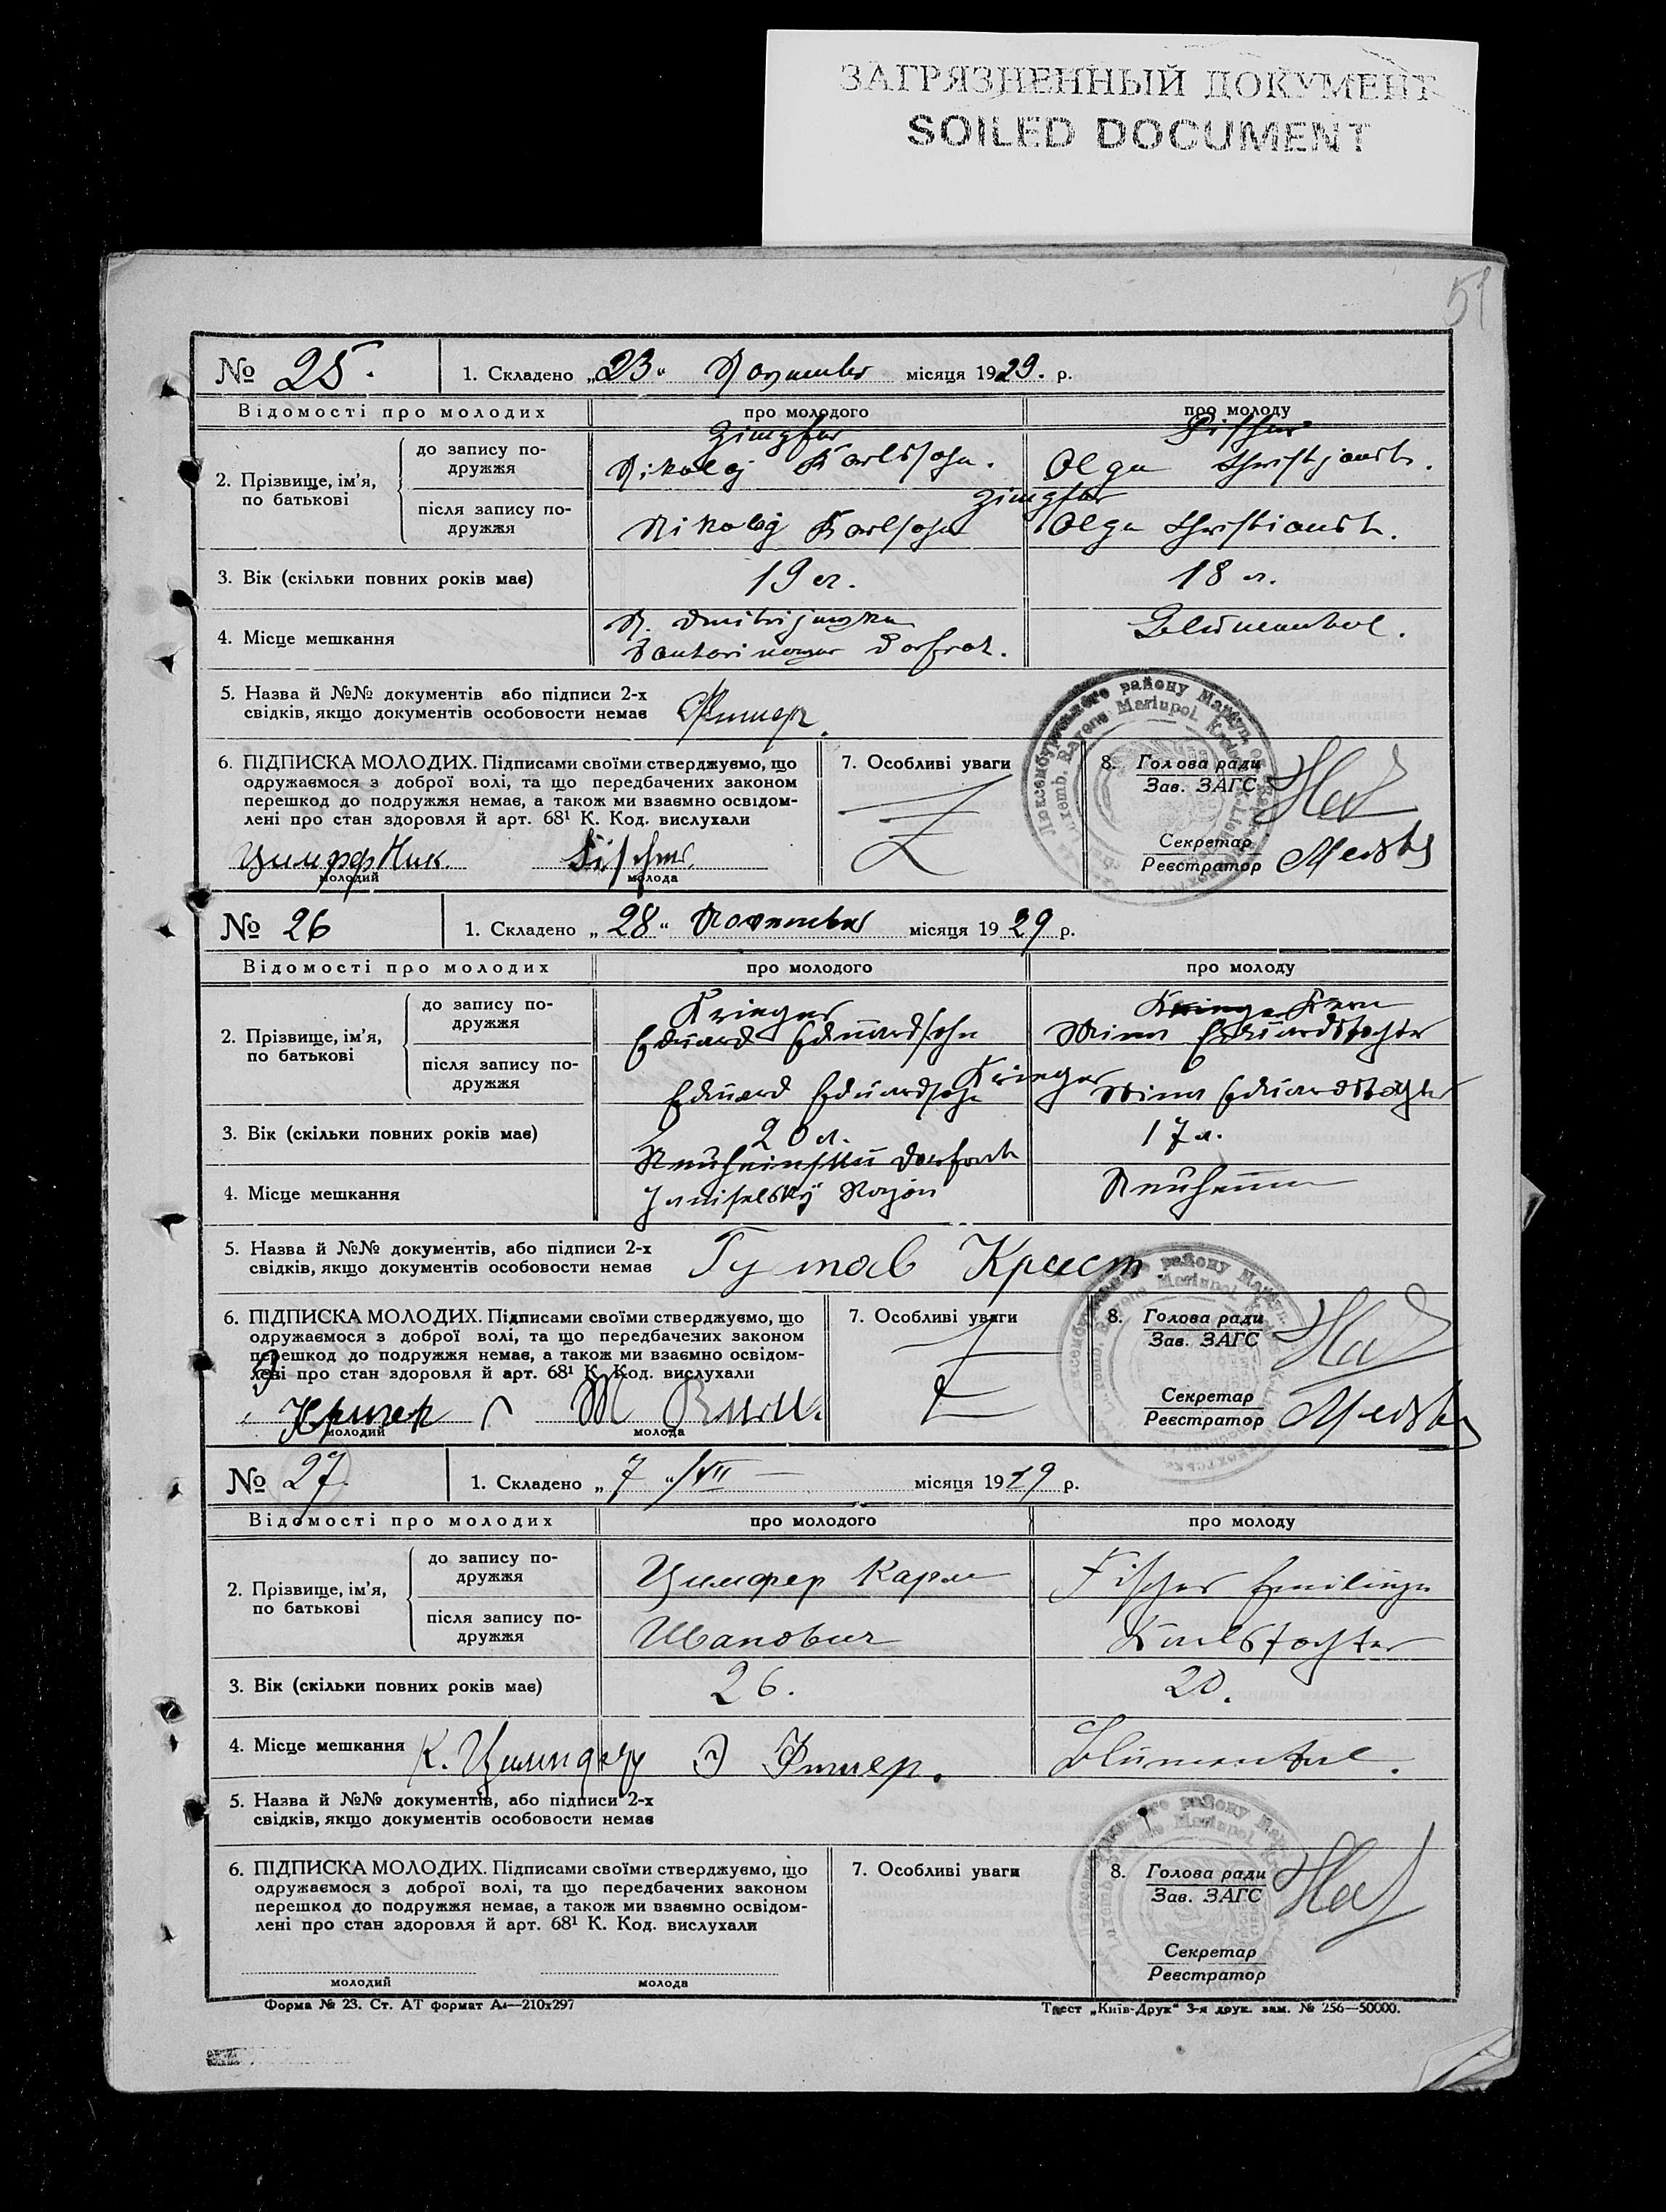 ЗАГРЯЗНЕННЫЙ ДОКУМЕНТ
SOILED DOCUMENT
51
№ 25. 1. Складено „23“ November місяця 1929. р.
Відомості про молодих про молодого про молоду
Zimpfer Fischer
до запису по-
дружжя Nikolaj Karlsohn. Olga
2. Прізвище, ім’я,
по батькові
Zimpfer
після запису по-
дружжя Nikolaj Karlsohn Olga
3. Вік (скільки повних років має) 19 л. 18 л.
4. Місце мешкання Dorfrat. Blumental.
5. Назва й №№ документів або підписи 2-х
свідків, якщо документів особовости немає Фишер.
6. ПІДПИСКА МОЛОДИХ. Підписами своїми стверджуємо, що
одружаємося з доброї волі, та що передбачених законом
перешкод до подружжя немає, а також ми взаємно освідом-
лені про стан здоровля й арт. 68¹ К. Код. вислухали
Fischer
молодий молода
7. Особливі уваги
8. Голова ради
Зав. ЗАГС
Секретар
Реєстратор
№ 26 1. Складено „28“ November місяця 1929 р.
Відомості про молодих про молодого про молоду
Krieger Kern
до запису по-
дружжя Eduard Eduardsohn Minna Eduardstochter
2. Прізвище, ім’я,
по батькові
Krieger
після запису по-
дружжя Eduard Eduardsohn Minna Eduardstochter
3. Вік (скільки повних років має) 20 л. 17 л.
4. Місце мешкання Dorfrat
Rajon Neuheim
5. Назва й №№ документів, або підписи 2-х
свідків, якщо документів особовости немає Густав Крист
6. ПІДПИСКА МОЛОДИХ. Підписами своїми стверджуємо, що
одружаємося з доброї волі, та що передбачених законом
перешкод до подружжя немає, а також ми взаємно освідом-
лені про стан здоровля й арт. 68¹ К. Код. вислухали
Э Кригер М
молодий молода
7. Особливі уваги
8. Голова ради
Зав. ЗАГС
Секретар
Реєстратор
№ 27. 1. Складено „7“ місяця 1929 р.
Відомості про молодих про молодого про молоду
до запису по-
дружжя Цимфер Карл Fischer
2. Прізвище, ім’я,
по батькові
після запису по-
дружжя Иванович Karlstochter
3. Вік (скільки повних років має) 26. 20.
4. Місце мешкання К. Э Фишер. Blumental.
5. Назва й №№ документів, або підписи 2-х
свідків, якщо документів особовости немає
6. ПІДПИСКА МОЛОДИХ. Підписами своїми стверджуємо, що
одружаємося з доброї волі, та що передбачених законом
перешкод до подружжя немає, а також ми взаємно освідом-
лені про стан здоровля й арт. 68¹ К. Код. вислухали
молодий молода
7. Особливі уваги
8. Голова ради
Зав. ЗАГС
Секретар
Реєстратор
Форма № 23. Ст. АТ формат А₄—210х297
Трест „Київ-Друк“ 3-я друк. зам. № 256—50000.